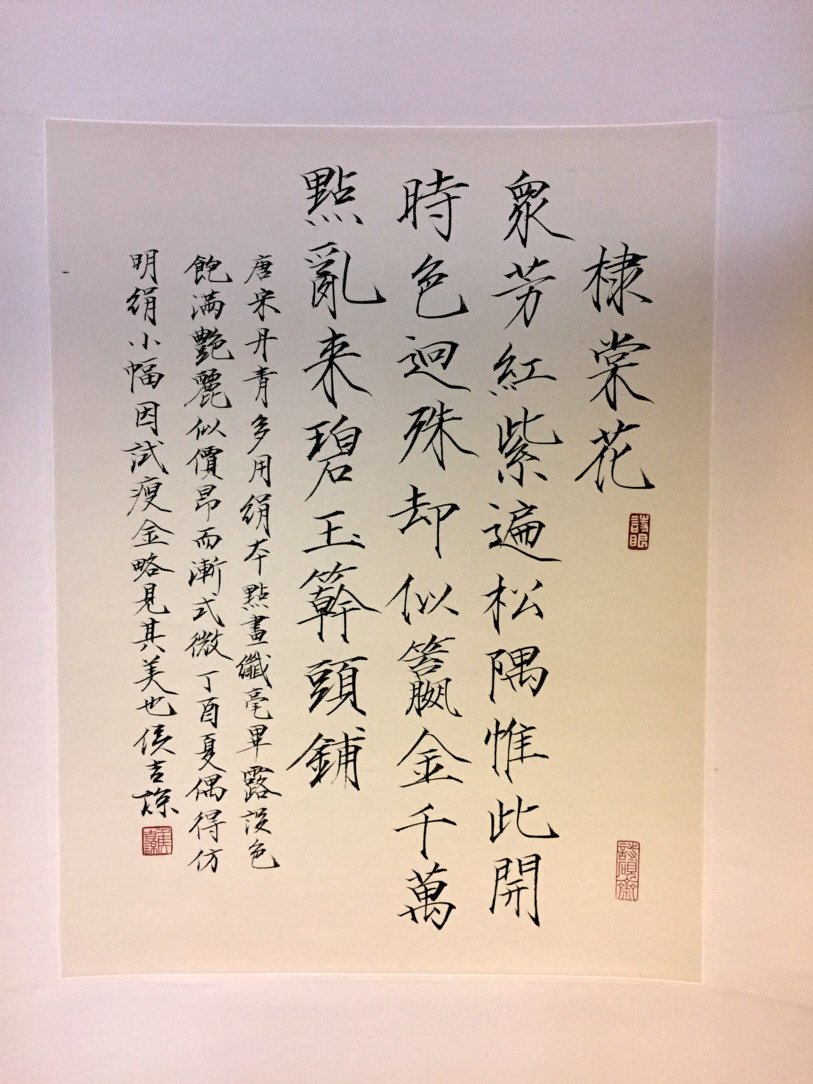 棣棠花
眾芳紅紫遍松隅惟此開
時色迥殊却似籯金千萬
點亂来碧玉簳頭鋪
唐宋丹青多用絹本點畫纖毫畢露設色
飽满艷麗似價昂而漸式微丁酉夏偶得仿
明絹小幅因試瘦金略見其美也侯吉諒
詩眼
詩硯齋